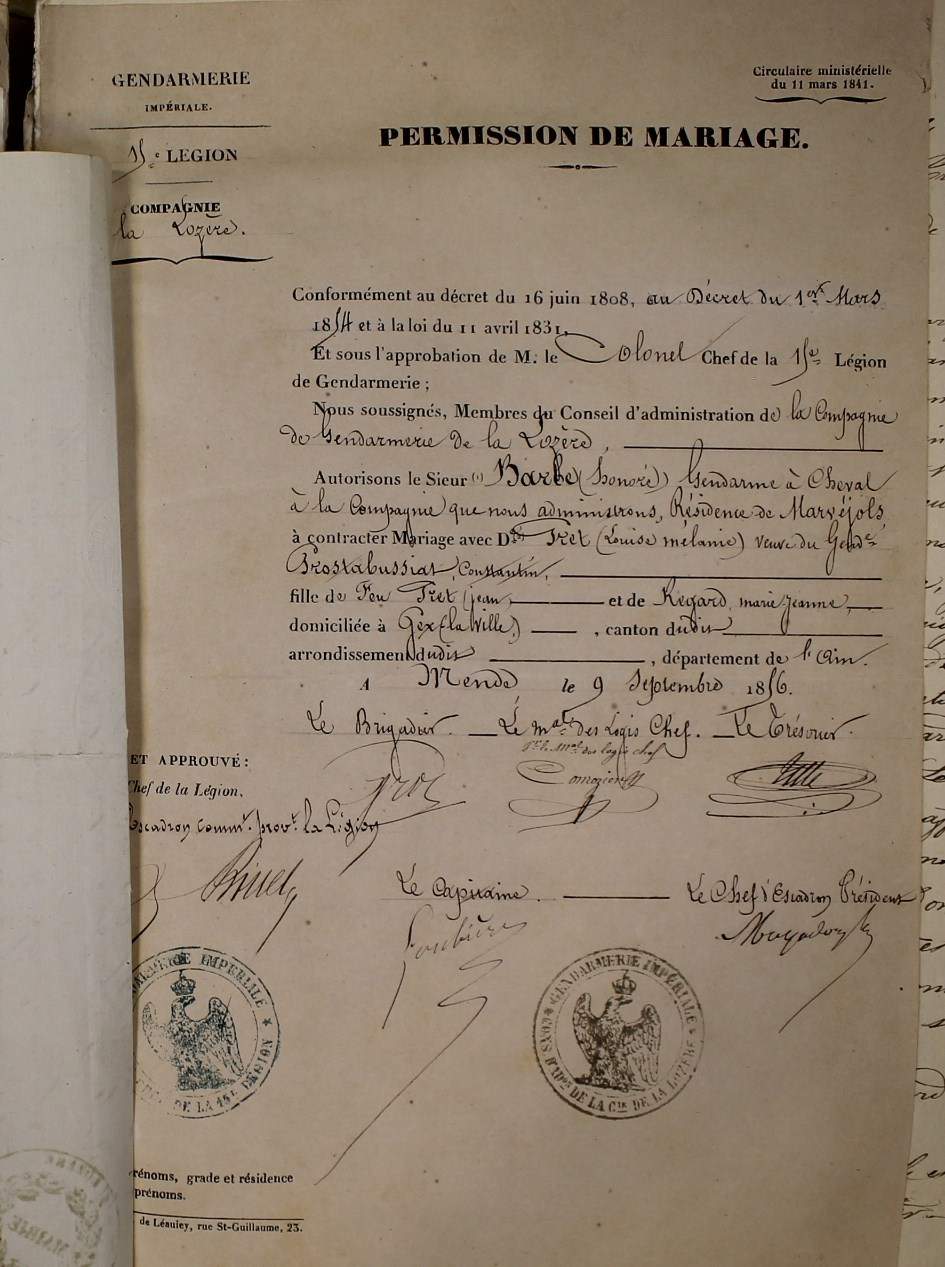 GENDARMERIE
IMPÉRIALE.
15e LEGION
COMPAGNIE
la Lozère.
Circulaire ministérielle
du 11 mars 1841.
PERMISSION DE MARIAGE.
Conformément au décret du 16 juin 1808, au Décret du 1er Mars
1854 et à la loi du 11 avril 1831,
Et sous l'approbation de M. le Colonel Chef de la 15e Légion
de Gendarmerie ;
Nous soussignés, Membres du Conseil d'administration de la Compagnie
de Gendarmerie de la Lozère,
Autorisons le Sieur (1) Barbe (honoré) Gendarme à Cheval
à la Compagnie que nous administrons, Résidence de Marvéjols
à contracter Mariage avec Dlle Fret (Louise mélanie) veuve du Gende
Prostabussiat, Constantin,
fille de Feu Fret (jean) et de Regard, marie Jeanne,
domiciliée à Gex (la Ville) , canton dudit
arrondissement dudit , département de l'Ain.
A Mende le 9 Septembre 1856.
Le Brigadier. Le mal des Logis Chef. Le Trésorier.
Pr le Mal des logis chef
ET APPROUVÉ :
Chef de la Légion,
Escadron commt provt la Légion
Le Capitaine. Le Chef d'Escadron Président
GENDARMERIE IMPÉRIALE
DE LA 15E LÉGION
GENDARMERIE IMPÉRIALE
CONS. D'ADON DE LA CIE DE LA LOZÈRE
prénoms, grade et résidence
prénoms.
de Léautey, rue St-Guillaume, 23.
MAIRIE